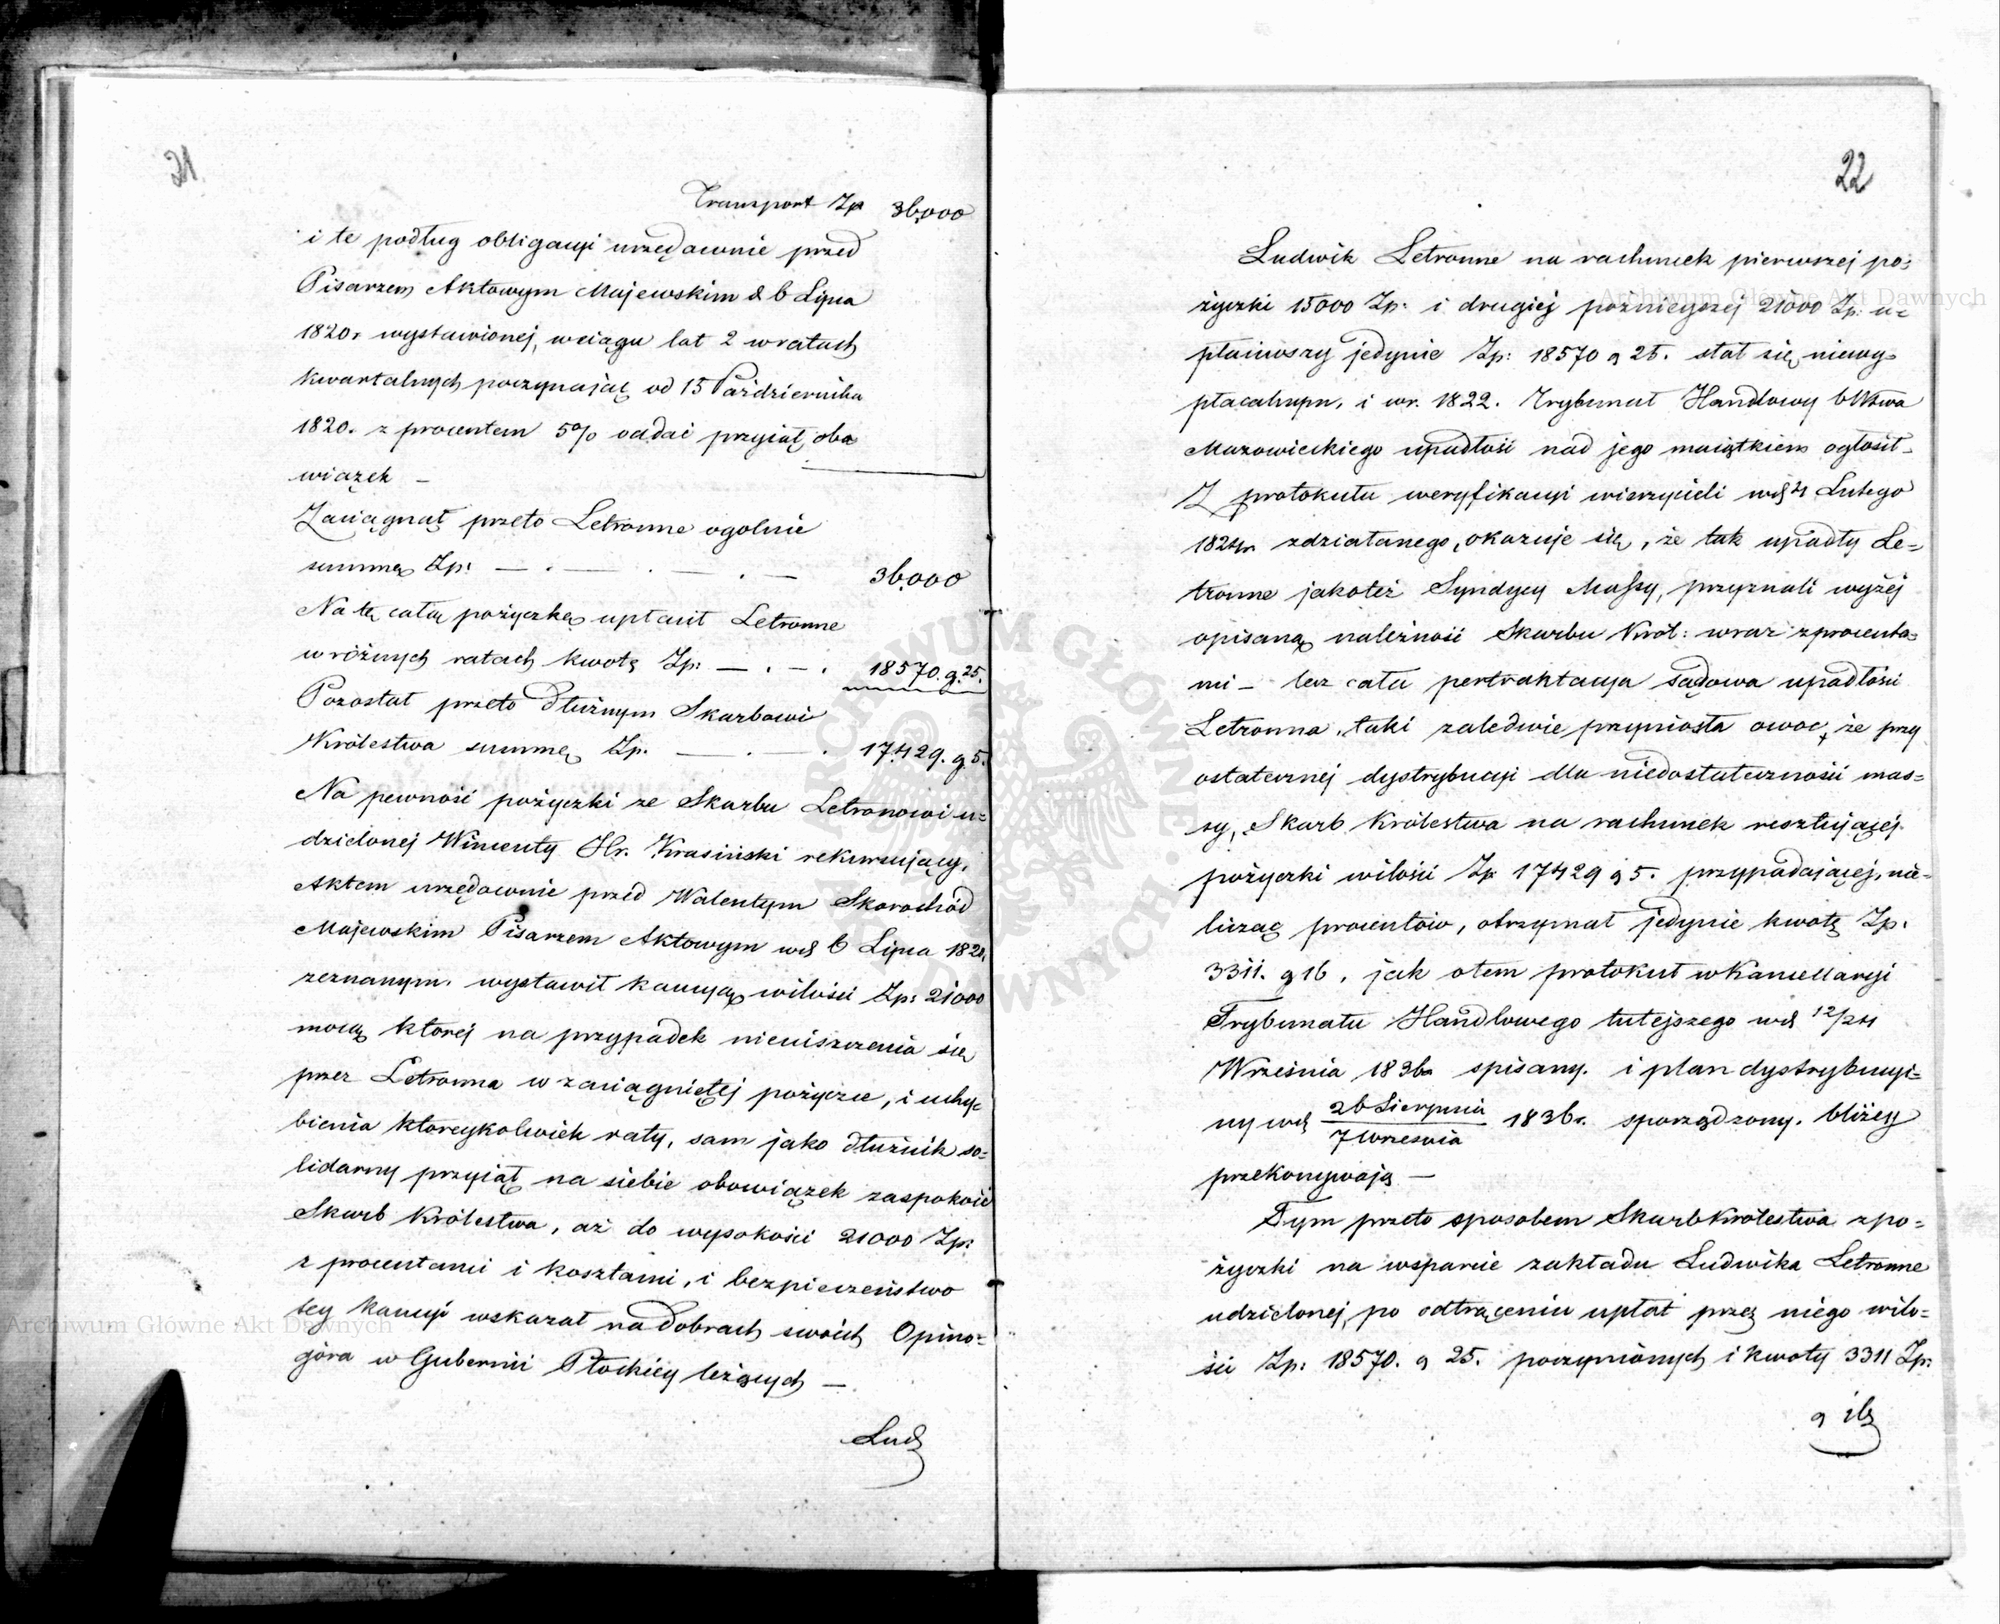 21.
Transport Zp 36,000
i te podług obligacyi urzędownie przed
Pisarzem Aktowym Majewskim d 6 Lipca
1820r wystawionej, wciągu lat 2 w ratach
kwartalnych poczynając od 15 Października
1820. z procentem 5% oddać przyiął obo
wiązek —
Zaciągnął przeto Letronne ogolnie
summę Zp: — . — . — . — 36,000
Na tę całą pożyczkę upłacił Letronne
w różnych ratach kwotę Zp: — . — . 18570. g. 25.
Pozostał przeto dłużnym Skarbowi
Królestwa summę Zp. — . — . 17429. g 5.
Na pewność pożyczki ze Skarbu Letronowi u=
dzielonej Wincenty Hr. Krasiński rekursujący,
Aktem urzędownie przed Walentym Skorochód
Majewskim Pisarzem Aktowym wd 6 Lipca 1820.
zeznanym. wystawił kaucyą wilości Zp: 21000
mocą ktorej na przypadek nieuiszczenia się
przez Letronna w zaciągniętej pożyczce, i uchy=
bienia ktoreykolwiek raty, sam jako dłużnik so=
lidarny przyiął na siebie obowiązek zaspokoić
Skarb Królestwa, aż do wysokości 21000 Zp:
z procentami i kosztami, i bezpieczeństwo
tey kaucyi wskazał na dobrach swoich Opino=
góra w Gubernii Płockiey leżących —
Lud
22
Ludwik Letronne na rachunek pierwszej po=
życzki 15000 Zp: i drugiej poźnieyszej 21000 Zp: u=
płaiwszy jedynie Zp: 18570 g 25. stał się niewy=
płacalnym, i w r. 1822. Trybunał Handlowy bWtwa
Mazowieckiego upadłość nad jego maiątkiem ogłosił.
Z protokułu weryfikacyi wierzycieli wd 4 Lutego
1824r zdziałanego, okazuje się, że tak upadły Le=
tronne jakoteż Syndycy Massy, przyznali wyżej
opisaną należność Skarbu Król: wraz z procenta=
mi — lecz cała pertraktacya sądowa upadłości
Letronna, taki zaledwie przyniosła owoc, że przy
ostatecznej dystrybucyi dla niedostateczności mas=
sy, Skarb Królestwa na rachunek resztującej
pożyczki wilości Zp 17429 g 5. przypadającej, nie=
licząc procentów, otrzymał jedynie kwotę Zp.
3311. g 16, jak otem protokuł w Kancellaryi
Trybunału Handlowego tutejszego wd 12/24
Września 1836r spisany. i plan dystrybucyi=
ny wd 26 Sierpnia / 7 Wrzesnia 1836r. sporządzony. bliżey
przekonywają —
Tym przeto sposobem Skarb Królestwa z po=
życzki na wsparcie zakładu Ludwika Letronne
udzielonej, po odtrąceniu upłat przez niego wilo=
ści Zp: 18570. g 25. poczynionych i kwoty 3311 Zp:
g 16
Archiwum Główne Akt Dawnych
Archiwum Główne Akt Dawnych
ARCHIWUM GŁÓWNE AKT DAWNYCH